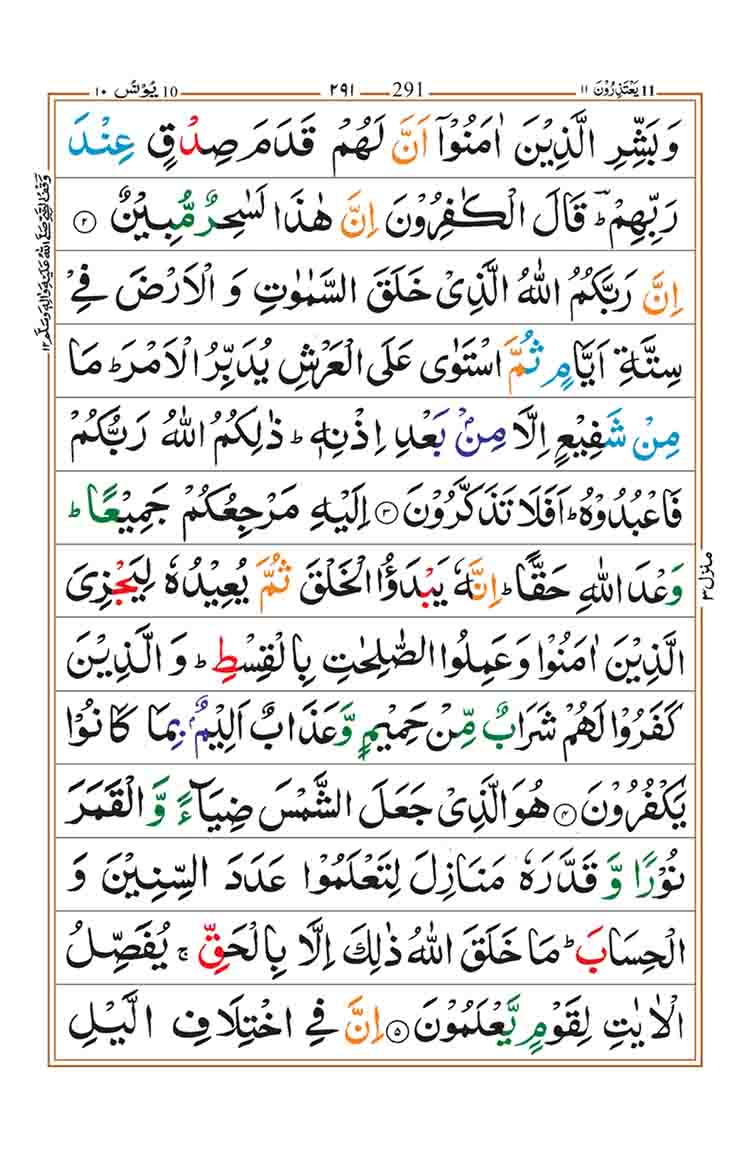 یَعْتَذِرُوْنَ ۱۱ 11 291 ۲۹۱ 10 یُوْنُس ۱۰
وَ بَشِّرِ الَّذِیْنَ اٰمَنُوْۤا اَنَّ لَهُمْ قَدَمَ صِدْقٍ عِنْدَ
رَبِّهِمْ ؕؔ قَالَ الْكٰفِرُوْنَ اِنَّ هٰذَا لَسٰحِرٌ مُّبِیْنٌ ۝۲
اِنَّ رَبَّكُمُ اللّٰهُ الَّذِیْ خَلَقَ السَّمٰوٰتِ وَ الْاَرْضَ فِیْ
سِتَّةِ اَیَّامٍ ثُمَّ اسْتَوٰی عَلَی الْعَرْشِ یُدَبِّرُ الْاَمْرَ ؕ مَا
مِنْ شَفِیْعٍ اِلَّا مِنْۢ بَعْدِ اِذْنِهٖ ؕ ذٰلِكُمُ اللّٰهُ رَبُّكُمْ
فَاعْبُدُوْهُ ؕ اَفَلَا تَذَكَّرُوْنَ ۝۳ اِلَیْهِ مَرْجِعُكُمْ جَمِیْعًا ؕ
وَعْدَ اللّٰهِ حَقًّا ؕ اِنَّهٗ یَبْدَؤُا الْخَلْقَ ثُمَّ یُعِیْدُهٗ لِیَجْزِیَ
الَّذِیْنَ اٰمَنُوْا وَ عَمِلُوا الصّٰلِحٰتِ بِالْقِسْطِ ؕ وَ الَّذِیْنَ
كَفَرُوْا لَهُمْ شَرَابٌ مِّنْ حَمِیْمٍ وَّ عَذَابٌ اَلِیْمٌۢ بِمَا كَانُوْا
یَكْفُرُوْنَ ۝۴ هُوَ الَّذِیْ جَعَلَ الشَّمْسَ ضِیَآءً وَّ الْقَمَرَ
نُوْرًا وَّ قَدَّرَهٗ مَنَازِلَ لِتَعْلَمُوْا عَدَدَ السِّنِیْنَ وَ
الْحِسَابَ ؕ مَا خَلَقَ اللّٰهُ ذٰلِكَ اِلَّا بِالْحَقِّ ۚ یُفَصِّلُ
الْاٰیٰتِ لِقَوْمٍ یَّعْلَمُوْنَ ۝۵ اِنَّ فِیْ اخْتِلَافِ الَّیْلِ
وقف النبی صلی الله علیه واله وسلم ۱۲
منزل ۳